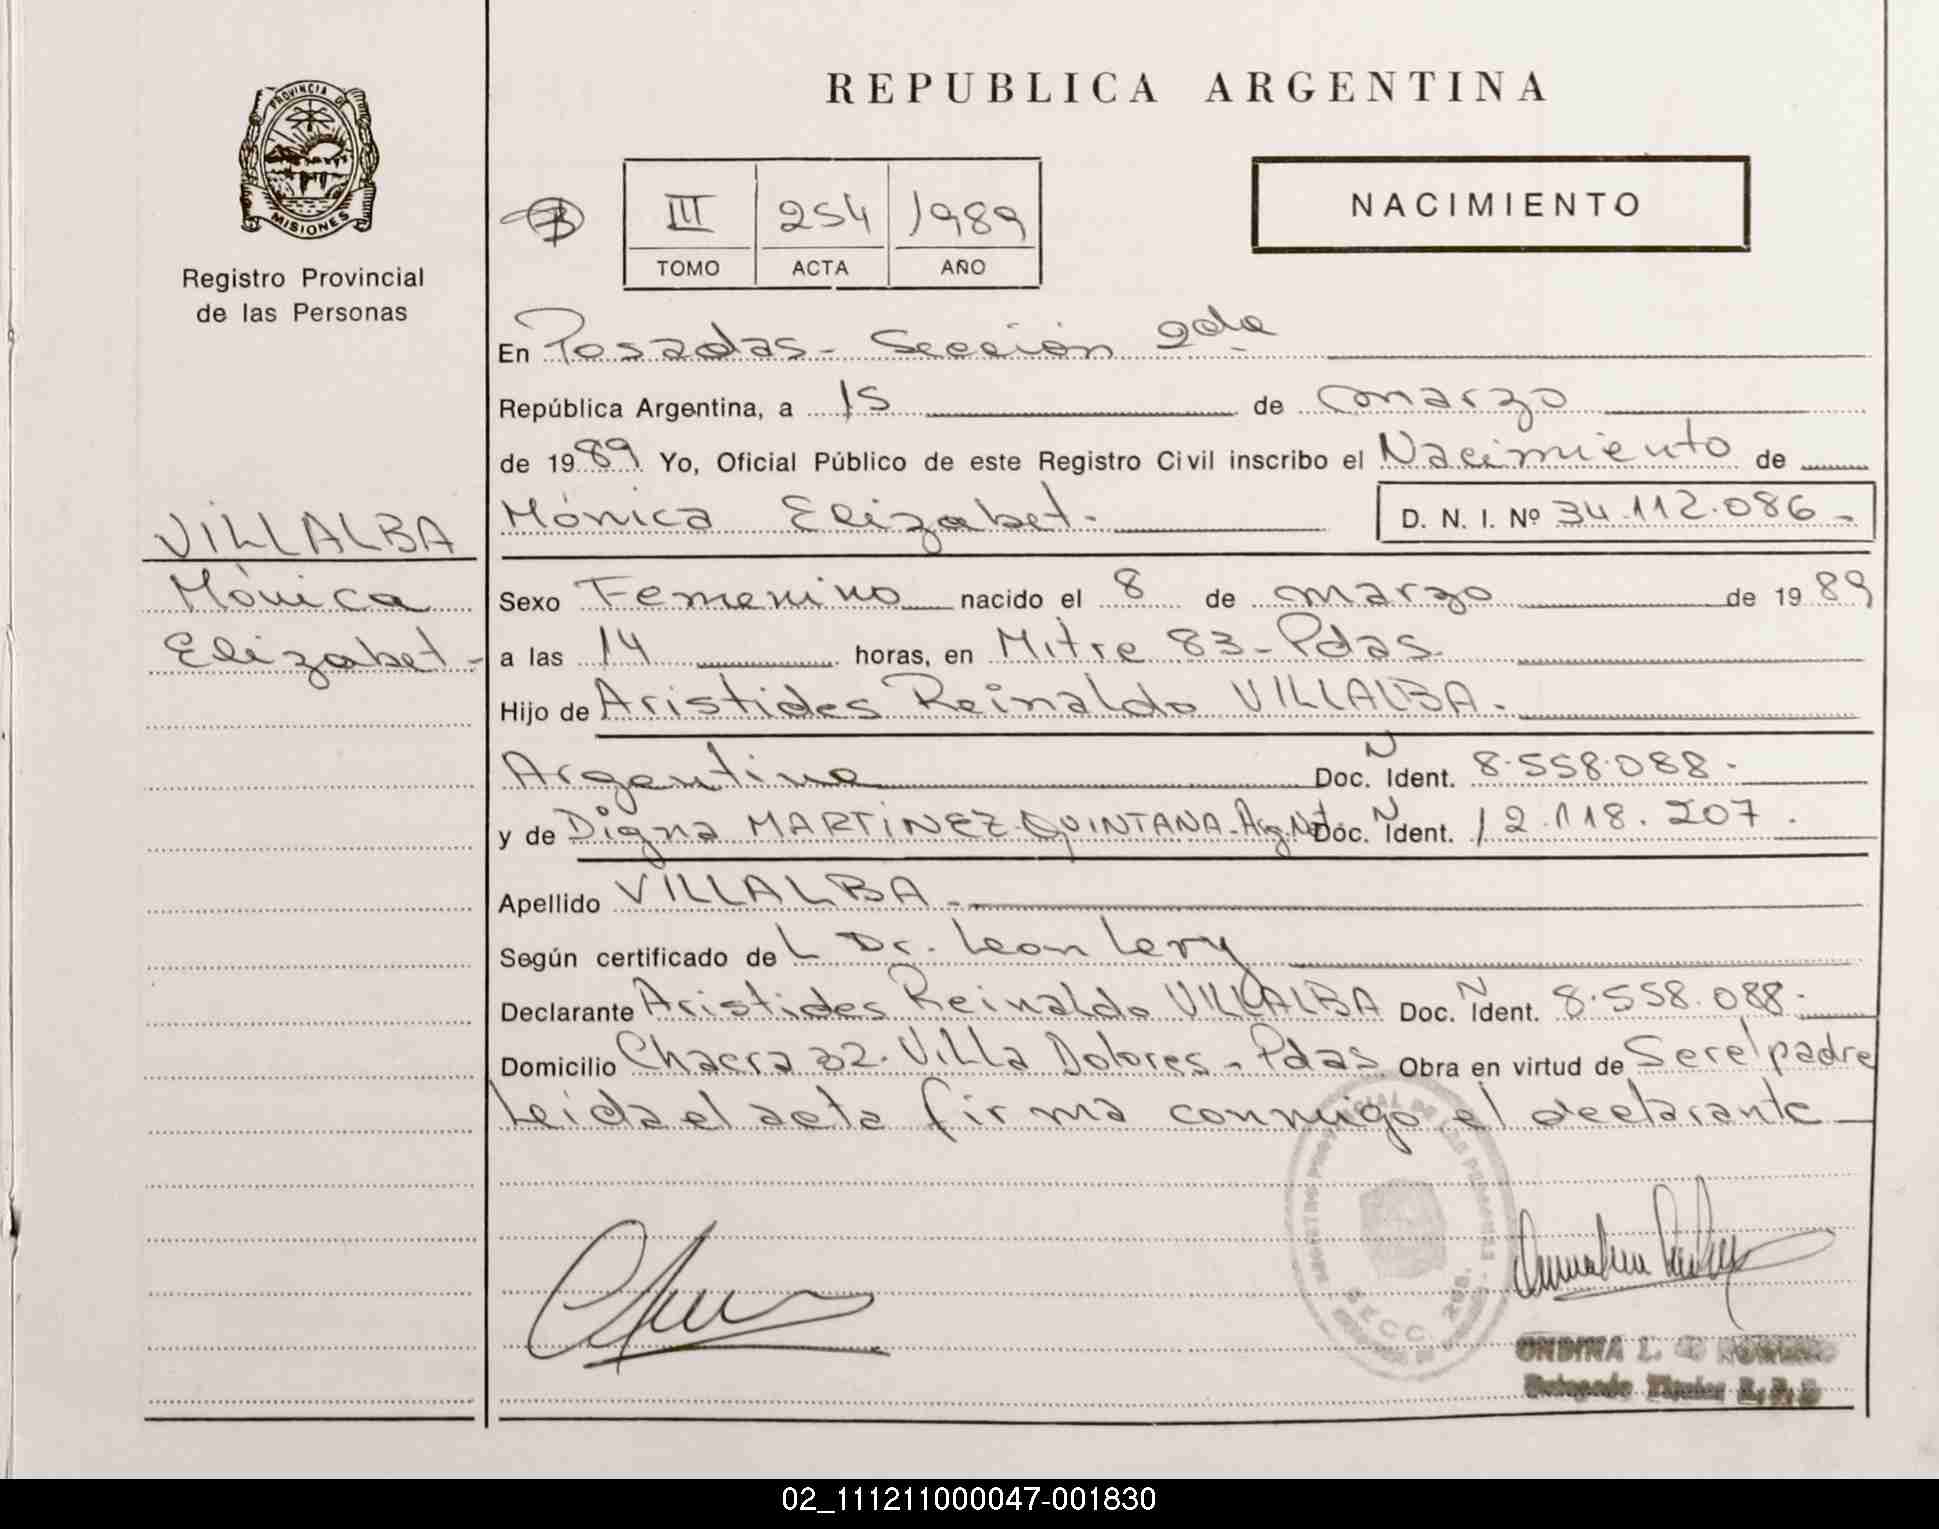 PROVINCIA DE
MISIONES
Registro Provincial
de las Personas
VILLALBA
Mónica
Elizabet -
REPUBLICA ARGENTINA
III 254 1989
TOMO ACTA AÑO
NACIMIENTO
En Posadas - Sección 2da
República Argentina, a 15 de marzo
de 1989 Yo, Oficial Público de este Registro Civil inscribo el Nacimiento de
Mónica Elizabet.- D. N. I. Nº 34.112.086 -
Sexo Femenino nacido el 8 de marzo de 1989
a las 14 horas, en Mitre 83 - Pdas.
Hijo de Aristides Reinaldo VILLALBA.
Argentino Doc. N Ident. 8.558.088.-
y de Digna MARTINEZ QUINTANA - Arg. Nat. Doc. N Ident. 12.118.207.
Apellido VILLALBA.-
Según certificado de L Dr. Leon Lery
Declarante Aristides Reinaldo VILLALBA Doc. N Ident. 8.558.088.-
Domicilio Chacra 32. Villa Dolores - Pdas Obra en virtud de Ser el padre
Leída el acta firma conmigo el declarante
SECC. 2da.
ONDINA L. de
Delegado Titular R. P. P
02_111211000047-001830